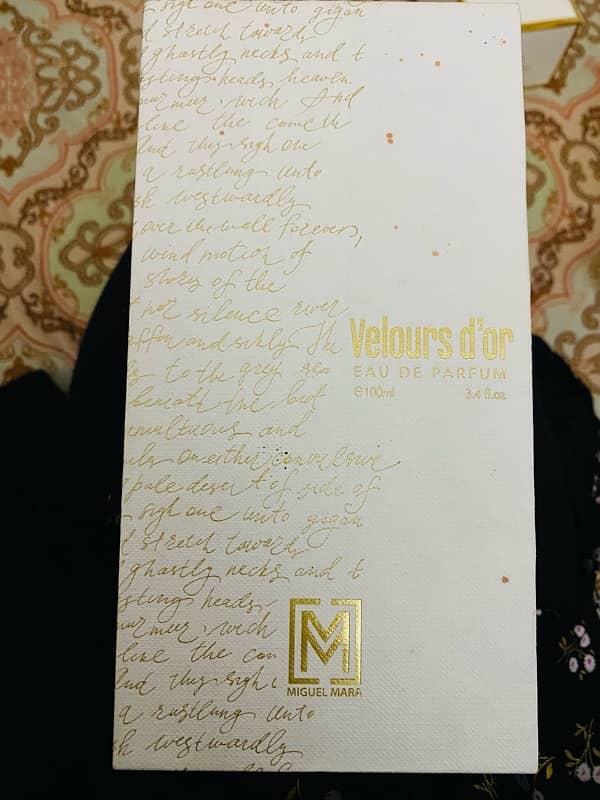 sigh one unto gigan
d stretch towards
ghastly necks and t
sting heads, heaven
murmur, wich And
line the cometh
And they sigh one
a rustlung unto
sk westwardly
over the wall forever,
wind motion of
story of the
not silence river
affon and sikly The
ly to the grey sea
beneath the but
umultuous and
uly on either convulsive
pale desert of side of
sigh one unto gigan
d stretch towards
ghastly necks and t
sting heads,
murmur, wich
line the com
And they sigh
a rustlung unto
sk westwardly
Velours d'or
EAU DE PARFUM
℮100ml 3.4 fl.oz
M
MIGUEL MARA